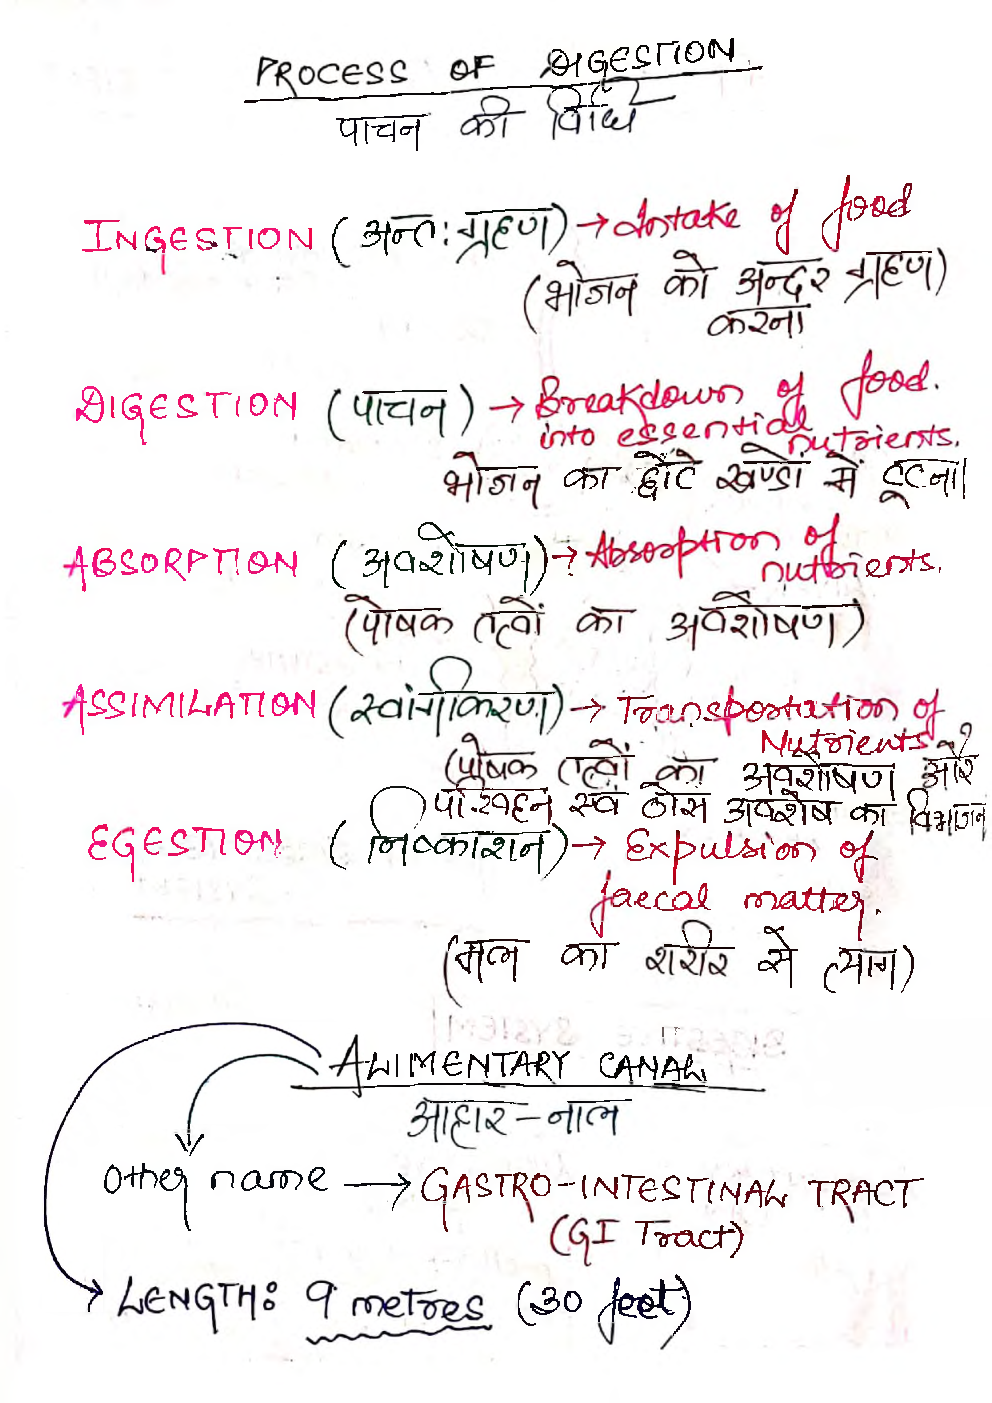 PROCESS OF DIGESTION
पाचन की विधि
INGESTION (अन्त:ग्रहण) → Intake of food
(भोजन को अन्दर ग्रहण)
करना
DIGESTION (पाचन) → Breakdown of food.
into essential nutrients.
भोजन का छोटे खण्डों में टूटना।
ABSORPTION (अवशोषण) → Absorption of
nutrients.
(पोषक तत्वों का अवशोषण)
ASSIMILATION (स्वांगीकिरण) → Transportation of
Nutrients
(पोषक तत्वों का अवशोषण और
परिवहन एवं ठोस अवशेष का विभाजन
EGESTION (निष्काशन) → Expulsion of
faecal matter.
(मल का शरीर से त्याग)
ALIMENTARY CANAL
आहार - नाल
Other name → GASTRO-INTESTINAL TRACT
(GI Tract)
LENGTH: 9 metres (30 feet)